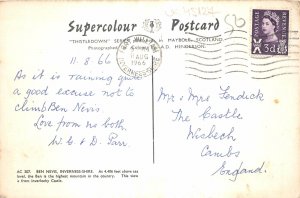 Supercolour Postcard
"THISTLEDOWN" SERIES MAYBOLE, SCOTLAND
Photographed A.D. HENDERSON.
BEN NEVIS
11 AUG
1966
INVERNESS-SHIRE
POSTAGE REVENUE
3d
11.8.66
As it is raining quite
a good excuse not to
climb Ben Nevis
Love from us both.
W. C & D. Parr.
Mr & Mrs Fendick
The Castle
Wisbech
Cambs
England.
AC 307. BEN NEVIS, INVERNESS-SHIRE. At 4,406 feet above sea
level, the Ben is the highest mountain in the country. This view
is from Inverlochy Castle.